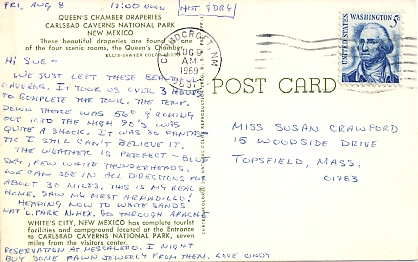 FRI, AUG 8 12:00 NOON HOT & DRY
QUEEN'S CHAMBER DRAPERIES
CARLSBAD CAVERNS NATIONAL PARK
NEW MEXICO
These beautiful draperies are found in one
of the four scenic rooms, the Queen's Chamber.
ELLIS-SAWYER COLOR
HI SUE -
WE JUST LEFT THESE BEAUTIFUL
CAVERNS. IT TOOK US OVER 3 HOURS
TO COMPLETE THE TOUR. THE TEMP.
DOWN THERE WAS 56° & COMING
OUT INTO THE HIGH 90'S WAS
QUITE A SHOCK. IT WAS SO FANTAS-
TIC I STILL CAN'T BELIEVE IT.
THE WEATHER IS PERFECT - BLUE
SKY, FEW WHITE THUNDERHEADS.
WE CAN SEE IN ALL DIRECTIONS FOR
ABOUT 30 MILES. THIS IS MY REAL
HOME. SAW MY FIRST ARMADILLO!
HEADING NOW TO WHITE SANDS
NAT'L. PARK N.MEX. GO THROUGH APACHE
WHITE'S CITY, NEW MEXICO has complete tourist
facilities and campground located at the Entrance
to CARLSBAD CAVERNS NATIONAL PARK, seven
miles from the visitors center.
RESERVATION AT MESCALERO. I MIGHT
BUY SOME PAWN JEWELRY FROM THEM. LOVE CINDY
NM
AUG 9
AM
1969
POST CARD
UNITED STATES
WASHINGTON
5¢
MISS SUSAN CRAWFORD
15 WOODSIDE DRIVE
TOPSFIELD, MASS.
01983